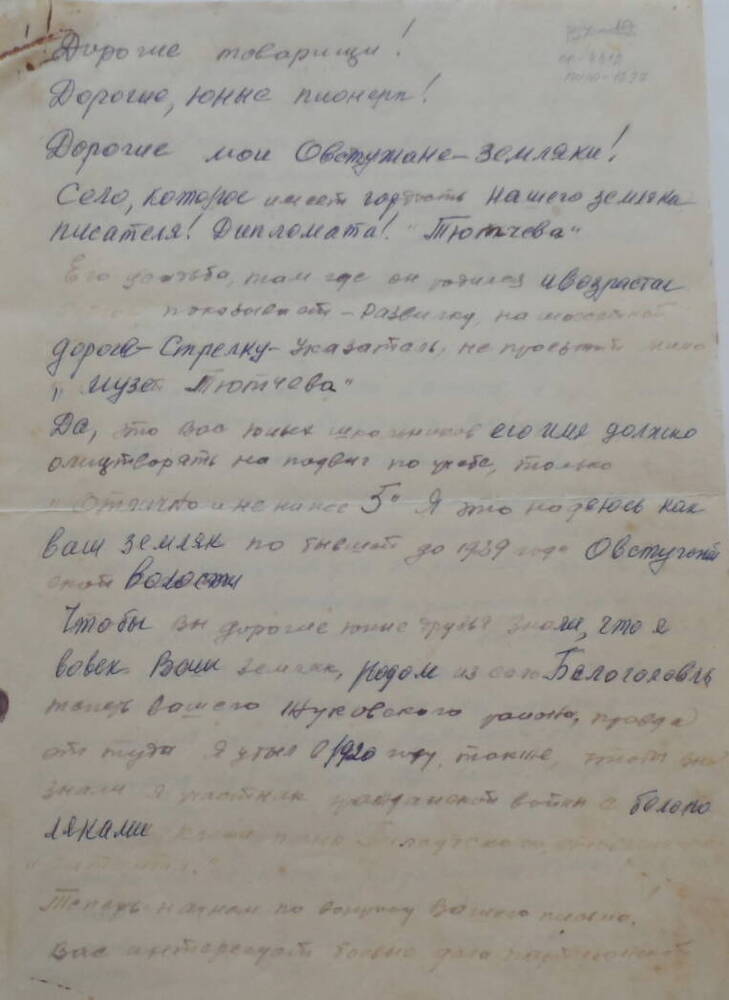 Дорогие товарищи!
Дорогие, юные пионеры!
Дорогие мои Овстужане-земляки!
Село, которое имеет гордость нашего земляка
писателя! Дипломата! "Тютчева"
Его усадьба, там где он родился и возрастал
показывает - развилку, на шоссейной
дороге - Стрелку - указатель, не проезжай мимо
"музей Тютчева"
Да, это вас юных школьников его имя должно
олицтворять на подвиг по учебе, только
"Отлично и не ниже 5" Я это надеюсь как
ваш земляк по бывшей до 1929 года Овстугов
ской волости
Чтобы вы дорогие юные друзья знали, что я
вовек Ваш земляк, родом из села Белоголовль
теперь вашего Жуковского района, правда
от туда я убыл в 1920 году, также, чтобы вы
знали я участник гражданской войны с белопо
ляками
Теперь начнем по вопросу Вашего письма.
Вас интересует больше дела партизанской